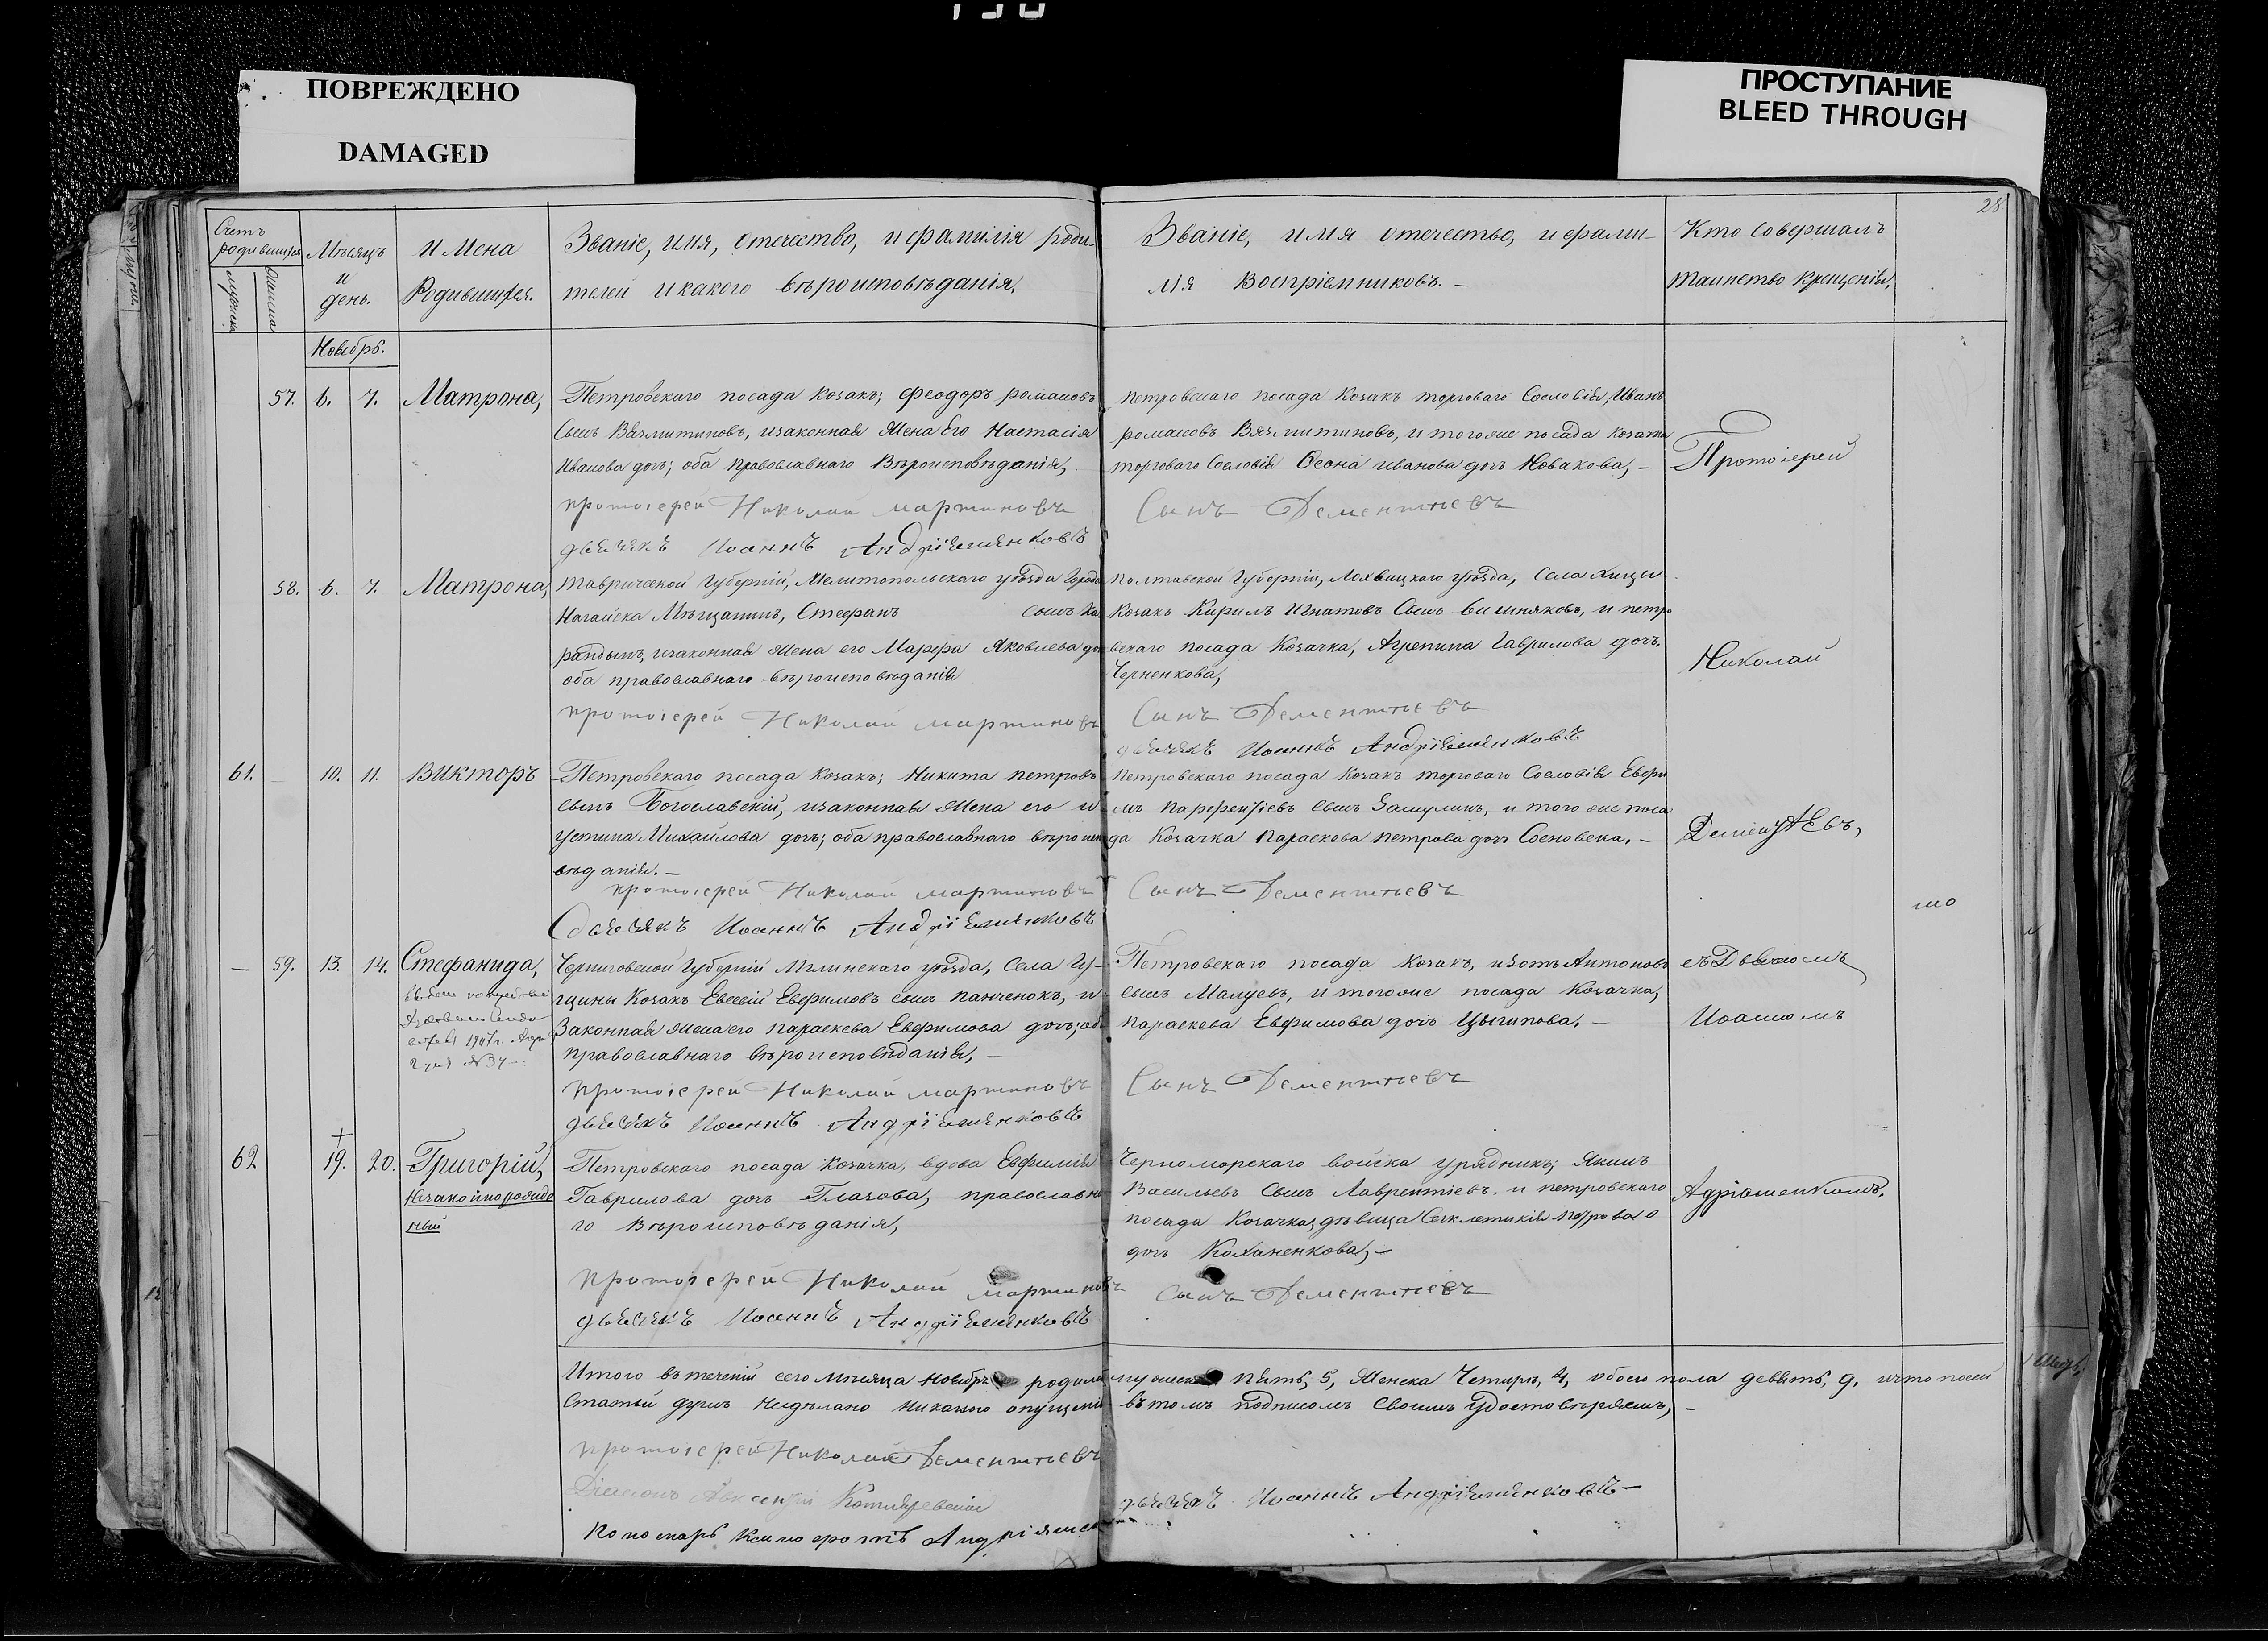 ПОВРЕЖДЕНО
DAMAGED
ПРОСТУПАНИЕ
BLEED THROUGH
28
Счетъ родившихся
мужеска
женска
Мѣсяцъ и день.
Имена Родившихся.
Званіе, имя, отечество, и фамилія роди-
телей и какого вѣроисповѣданія.
Званіе, имя отечество, и фами-
лія Воспріемниковъ. —
Кто совершалъ
таинство крещенія,
Ноябрь.
57. 6. 7. Матрона,
Петровскаго посада козакъ; Феодоръ романовъ
сынъ Вязмитиновъ, изаконная жена его Настасія
Иванова дочь; оба православнаго Вѣроисповѣданія,
протоіерей Николай мартиновъ
дьячекъ Иоаннъ Андріяшенковъ
петровскаго посада Козакъ торговаго Сословія, Иванъ
романовъ Вязмитиновъ, и тогоже посада козачка
торговаго Сословія Ѳеона иванова дочь Новакова, —
Сынъ Дементьевъ
Протоіерей
58. 6. 7. Матрона,
таврической Губерніи, Мелитопольскаго уѣзда Города
Нагайска Мѣщанинъ, Стефанъ сынъ Ха
рандынъ, изаконная жена его Марфа Яковлева доч
оба православнаго вѣроисповѣданія
протоіерей Николай мартиновъ
Полтавской Губерніи, Лохвицкаго уѣзда, Села
Козакъ Кирилъ Игнатовъ Сынъ Вишняковъ, и петро
вскаго посада Козачка, Агрепина Гаврилова дочь
Черненкова,
Сынъ Дементьевъ
дьячекъ Иоаннъ Андріяшенковъ
Николай
61. — 10. 11. Викторъ
Петровскаго посада Козакъ; Никита петровъ
сынъ Богославскій, изаконная жена его и
устина Михайлова дочь; оба православнаго вѣроиспо
вѣданія. —
протоіерей Николай мартиновъ
дьячекъ Иоаннъ Андріяшенковъ
петровскаго посада Козакъ торговаго Сословія Евфи
мъ парфентіевъ сынъ Замулинъ, и того же поса
да Козачка Параскева петрова дочь Сосновска. —
Сынъ Дементьевъ
Дементьевъ,
— 59. 13. 14. Стефанида,
1907 г.
Черниговской Губерніи Мглинскаго уѣзда, Села Гу-
щины Козакъ Евсевій Евфимовъ сынъ панченокъ, и
Законная жена его параскева Евфимова дочь; об
православнаго вѣроисповѣданія, —
протоіерей Николай мартиновъ
дьячекъ Иоаннъ Андріяшенковъ
Петровскаго посада Козакъ, изотъ Антоновъ
сынъ Малуевъ, и тогоже посада Козачка,
параскева Евфимова дочь Цыгипова. —
Сынъ Дементьевъ
съ Дьячкомъ
Иоанномъ
62 19. 20. Григорій,
Незаконнорожде
ный
Петровскаго посада Козачка, вдова Евфимія
Гаврилова дочь Глазова, православна
го Вѣроисповѣданія,
протоіерей Николай мартиновъ
дьячекъ Иоаннъ Андріяшенковъ
Черноморскаго войска урядникъ; Якимъ
Васильевъ Сынъ Лаврентіевъ. и петровскаго
посада Козачка, дѣвица Секлетикія Петрова
дочь Коханенкова, —
Сынъ Дементьевъ
Адріяшенкомъ.
Итого въ теченіи сего мѣсяца Ноября родило
мужеска пять, 5, женска Четыре, 4, обоего пола девять, 9, и что посей
Статьи душъ несдѣлано никакого опущенія
въ томъ подписомъ Своимъ Удостовѣряемъ, —
протоіерей Николай Дементьевъ
Діаконъ Авксентій Котляревскій
дьячекъ Иоаннъ Андріяшенковъ —
Пономарь Ксинофонтъ Андріяшен